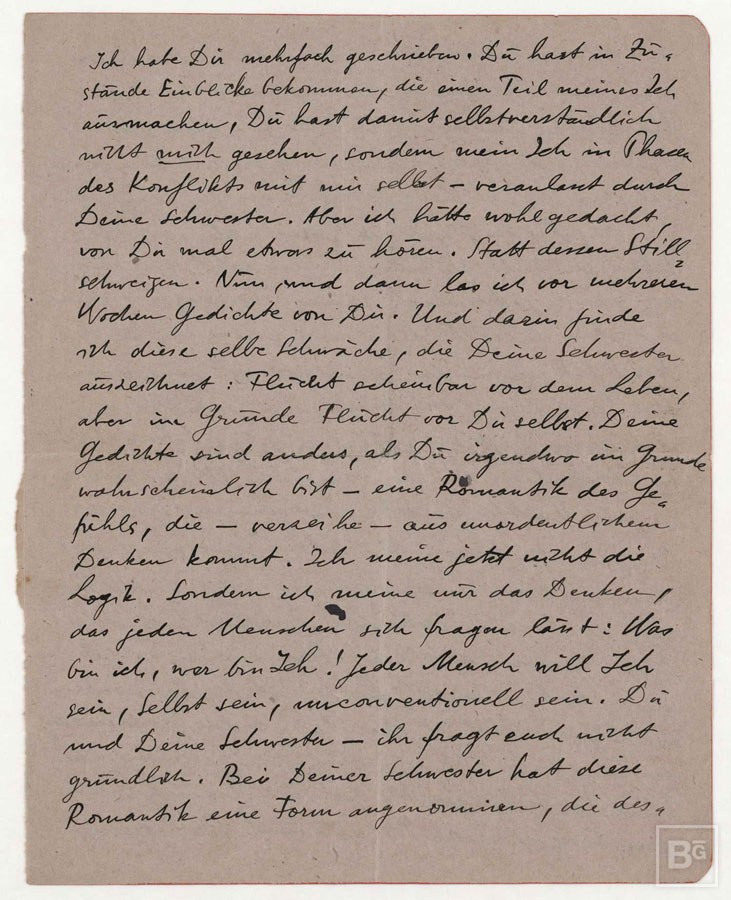 Ich habe Dir mehrfach geschrieben. Du hast in Zu-
stände Einblicke bekommen, die einen Teil meines Ich
ausmachen, Du hast damit selbstverständlich
nicht mich gesehen, sondern mein Ich in Phasen
des Konflikts mit mir selbst – veranlasst durch
Deine Schwester. Aber ich hätte wohl gedacht,
von Dir mal etwas zu hören. Statt dessen Still-
schweigen. Nun, und dann las ich vor mehreren
Wochen Gedichte von Dir. Und darin finde
ich diese selbe Schwäche, die Deine Schwester
auszeichnet: Flucht scheinbar vor dem Leben,
aber im Grunde Flucht vor Dir selbst. Deine
Gedichte sind anders, als Du irgendwo im Grunde
wahrscheinlich bist – eine Romantik des Ge-
fühls, die – verzeihe – aus unordentlichem
Denken kommt. Ich meine jetzt nicht die
Logik. Sondern ich meine nur das Denken,
das jeden Menschen sich fragen lässt: Was
bin ich, wer bin Ich! Jeder Mensch will Ich
sein, Selbst sein, unconventionell sein. Du
und Deine Schwester – ihr fragt euch nicht
gründlich. Bei Deiner Schwester hat diese
Romantik eine Form angenommen, die des-
BG